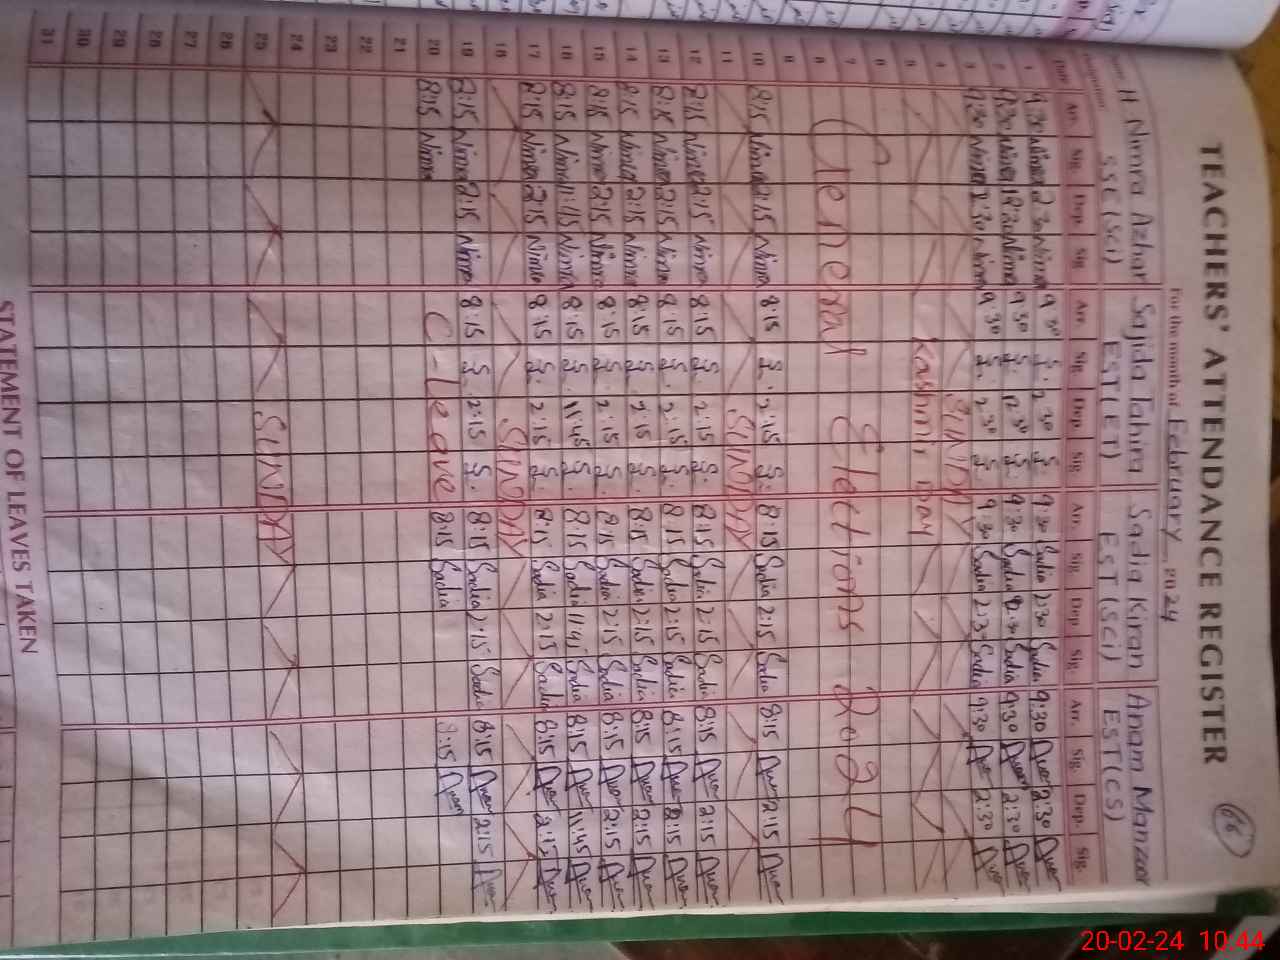 66
TEACHERS' ATTENDANCE REGISTER
For the month of February 2024
Name H Nimra Azhar Sajida Tahira Sadia Kiran Anam Manzoor
Designation SSC (Sci) EST (ET) EST (Sci) EST (CS)
Date Arr. Sig. Dep. Sig Arr. Sig. Dep Sig. Arr. Sig. Dep Sig. Arr. Sig. Dep. Sig.
1 9:30 Nimra 2:30 Nimra 9:30 S. 2:30 S. 9:30 Sadia 2:30 Sadia 9:30 Anam 2:30 Anam
2 9:30 Nimra 12:30 Nimra 9:30 S. 12:30 S. 9:30 Sadia 12:30 Sadia 9:30 Anam 2:30 Anam
3 9:30 Nimra 2:30 Nimra 9:30 S. 2:30 S. 9:30 Sadia 2:30 Sadia 9:30 Anam 2:30 Anam
4 SUNDAY
5 Kashmir Day
6
7 General Elections 2024
8
9
10 8:15 Nimra 2:15 Nimra 8:15 S. 2:15 S. 8:15 Sadia 2:15 Sadia 8:15 Anam 2:15 Anam
11 SUNDAY
12 8:15 Nimra 2:15 Nimra 8:15 S. 2:15 S. 8:15 Sadia 2:15 Sadia 8:15 Anam 2:15 Anam
13 8:15 Nimra 2:15 Nimra 8:15 S. 2:15 S. 8:15 Sadia 2:15 Sadia 8:15 Anam 2:15 Anam
14 8:15 Nimra 2:15 Nimra 8:15 S. 2:15 S. 8:15 Sadia 2:15 Sadia 8:15 Anam 2:15 Anam
15 8:15 Nimra 2:15 Nimra 8:15 S. 2:15 S. 8:15 Sadia 2:15 Sadia 8:15 Anam 2:15 Anam
16 8:15 Nimra 11:45 Nimra 8:15 S. 11:45 S. 8:15 Sadia 11:45 Sadia 8:15 Anam 11:45 Anam
17 8:15 Nimra 2:15 Nimra 8:15 S. 2:15 S. 8:15 Sadia 2:15 Sadia 8:15 Anam 2:15 Anam
18 SUNDAY
19 8:15 Nimra 2:15 Nimra 8:15 S. 2:15 S. 8:15 Sadia 2:15 Sadia 8:15 Anam 2:15 Anam
20 8:15 Nimra C-Leave 8:15 Sadia 8:15 Anam
21
22
23
24
25 SUNDAY
26
27
28
29
30
31
STATEMENT OF LEAVES TAKEN
20-02-24 10:44